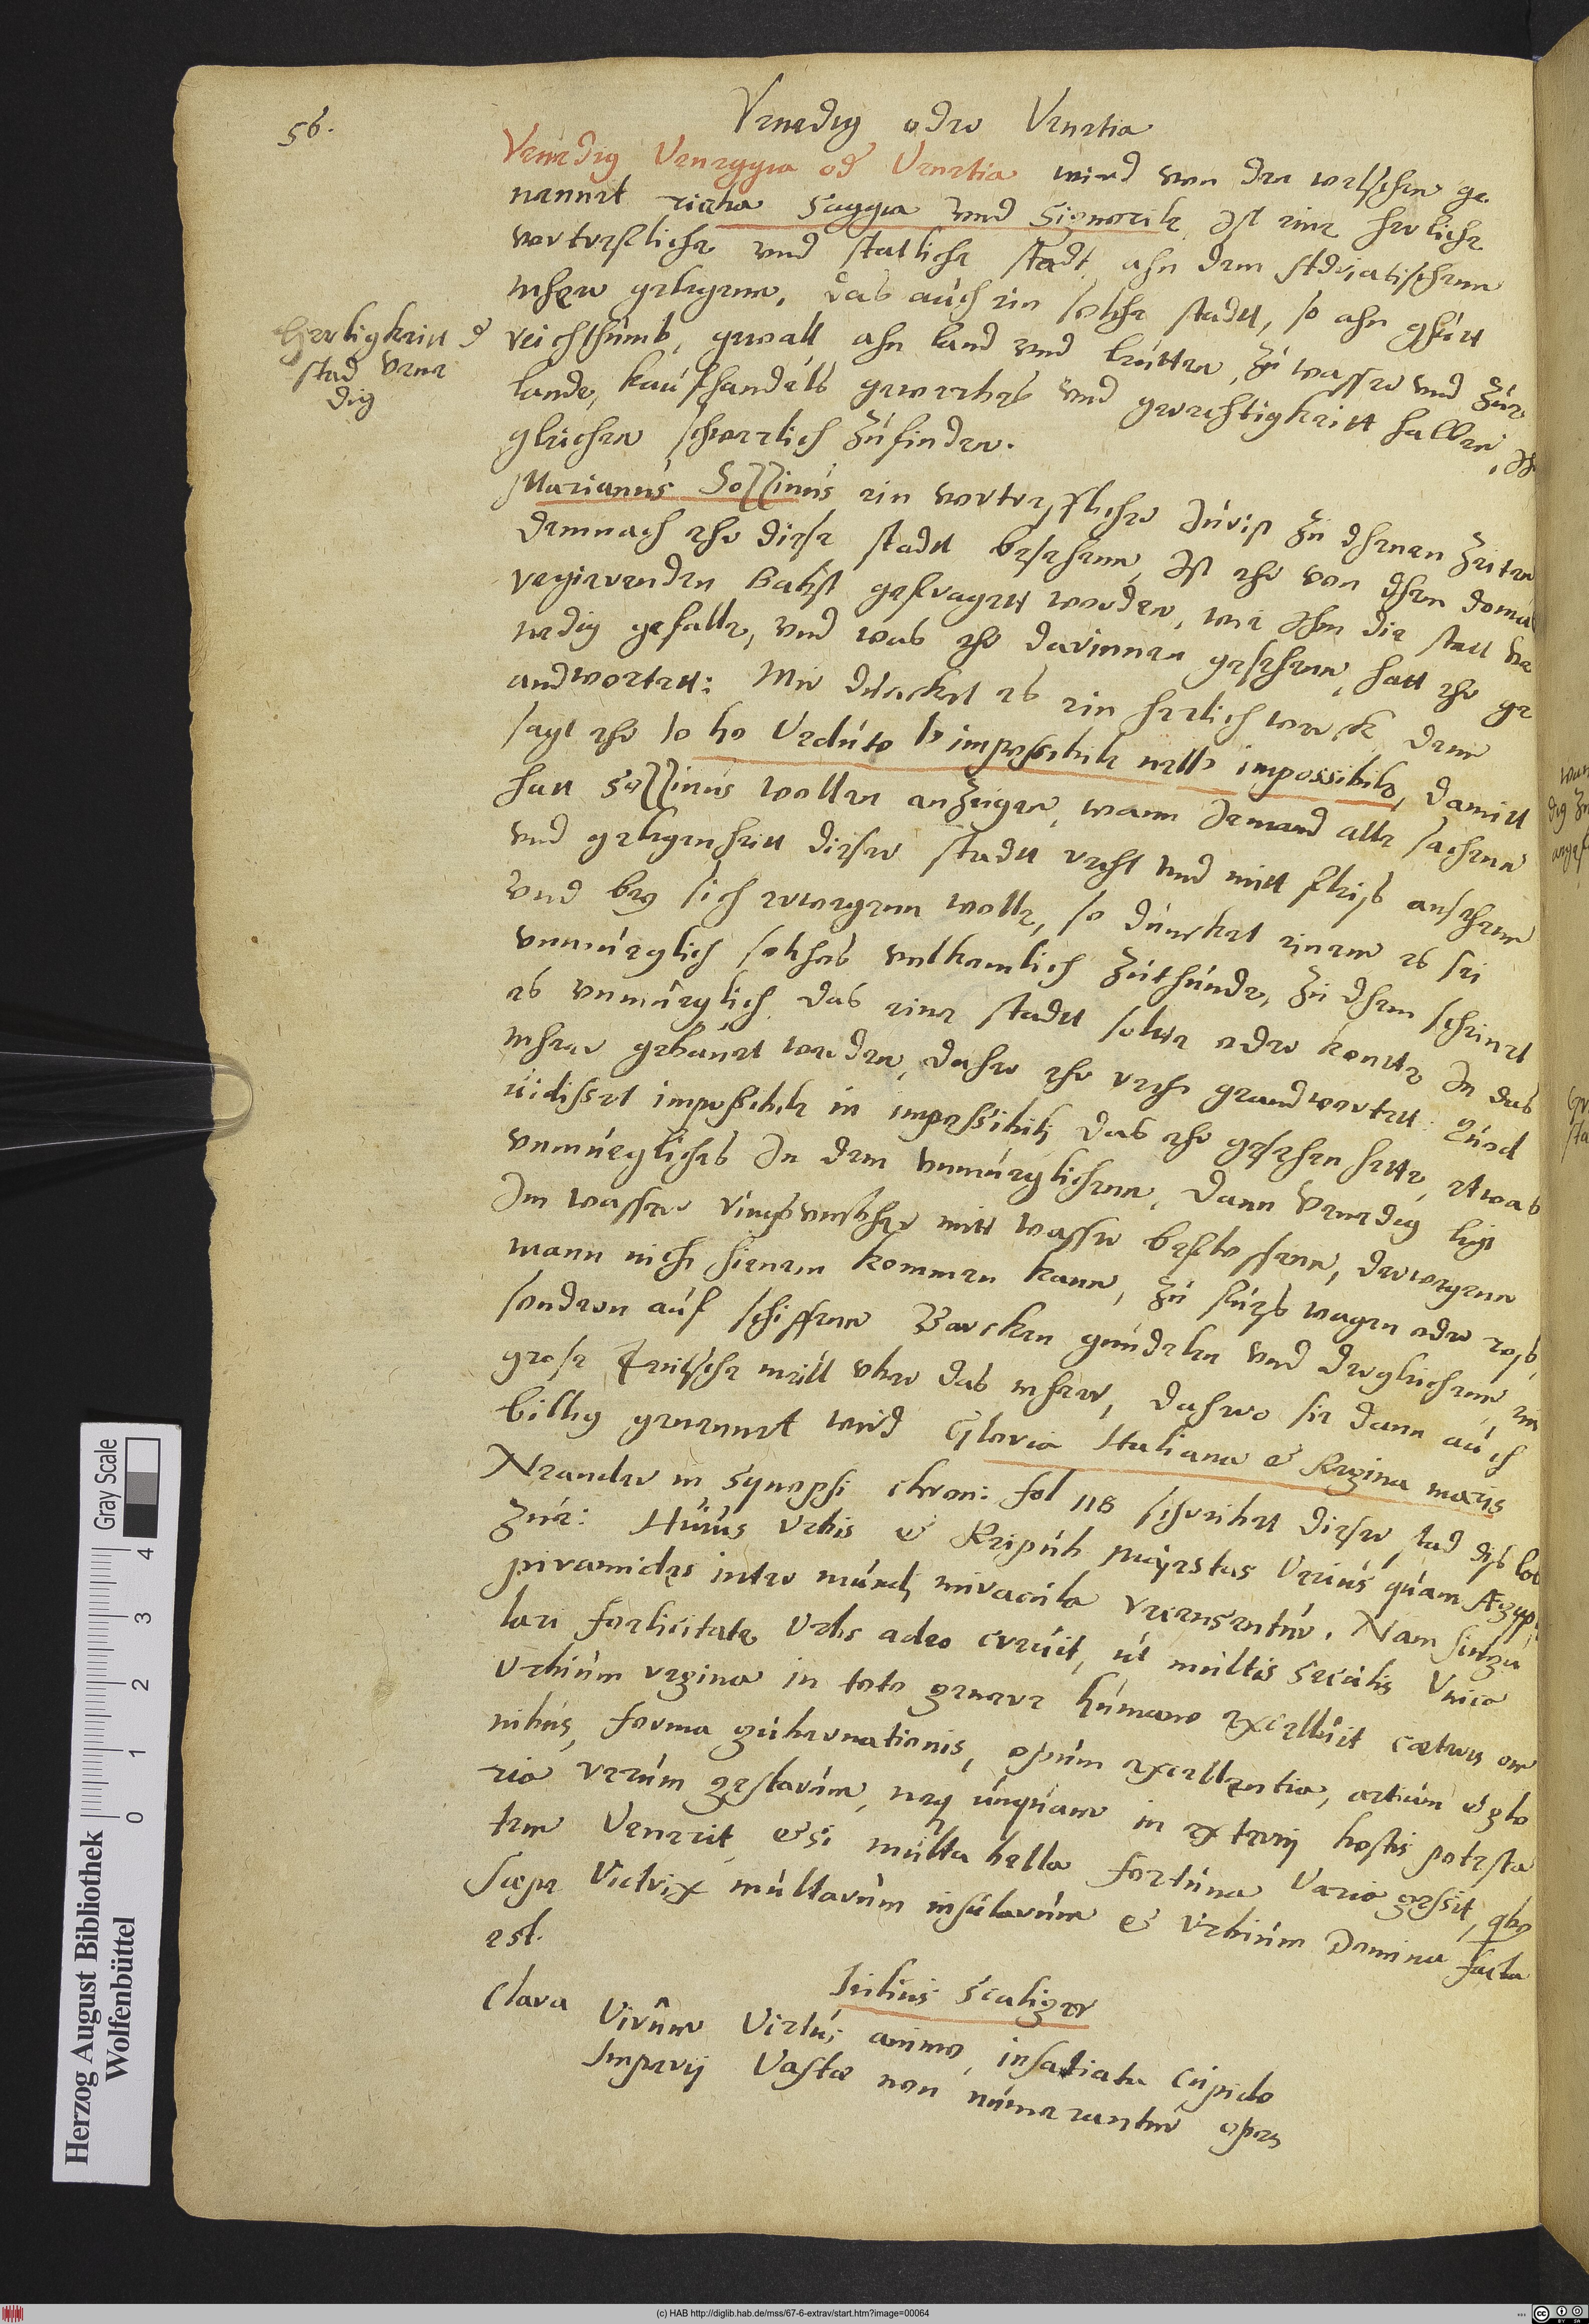 56.
Venedig oder Venetia
Venedig Veneggia od Venetia wird von den welschen ge
nennet richa saggia vnd Signorile. Ist eine herliche
vortrefliche vnd statliche stadt ahn dem Adriatischenn
Herligkeitt d
stad Vene
dig
mheer gelegenn, das auch ein solche stadtt, so ahn ghutt
reichthumb, gewalt ahn land vnd leutten, zu wasser vnd zur
lande, kaufhandels gewerbes vnd gerechtigkeitt halben,
gleichen schwerlich zufinden.
Marianus Sozzinus ein vortrefflicher Jurist zu dhenen zeiten
demnach ehr diese stadtt besehenn, Ist ehr von dhem doma
regierenden Babst gefragett worden, wie Ihm die statt Ve
nedig gefalle, vnd was ehr darinnen gesehenn, hatt ehr ge
andwortett: Mir duncket es ein herlich werck denn
sagt ehr Io ho Veduto l'impossibile nello impossibile, damitt
hatt Sozzinus wollen anzeigen, wann Iemand alle sachenn
vnd gelegenheitt dieser stadtt recht vnd mitt fleiss ansehenn
vnd bey sich erwegenn wolle, so duncket einem es sei
vnmueglich solches volkomlich zuthunde, zu dhem scheinet
es vnmueglich das eine stadtt solte oder konte In das
mheer gebauet werden, daher ehr recht geandwortett: Quod
vidisset impossibile in impossibili das ehr gesehen hette, etwas
vnmuegliches In dem vnmueglichenn, dann Venedig ligt
Im wasser ringsvmbher mitt wasser beflossenn, derwegenn
mann nicht hienein kommen kann, zu fuess wagen oder ross,
sondern auf schiffenn Barcken gundelen vnd dergleichenn, ein
grose Teutsche meill vber das mheer, dahero sie dann auch
billig genennet wird Gloria Italiana & Regina maris
Neander in synopsi chron: fol 118 schreibet dieser stad diss lob
zue: Huius Vrbis & Reipub majestas Verius quam Ægyp
piramides inter mundi miracula recensentur. Nam singu
lari foelicitate Vrbs adeo crevit, ut multis seculis Vnica
Vrbium regina in toto genere humano excelluit cæteris om
nibus, forma gubernationis, opum excellentia, artium & glo
ria rerum gestarum, neq unquam in externi hostis potesta
tem Venerit, etsi multa bella fortuna Varia gessit,
sæpe Victrix multarum insularum & Vrbium Domina facta
est.
Iulius Scaliger
Clara Virûm Virtus animo, insatiata cupido
Imperij Vastæ non numerantur opes